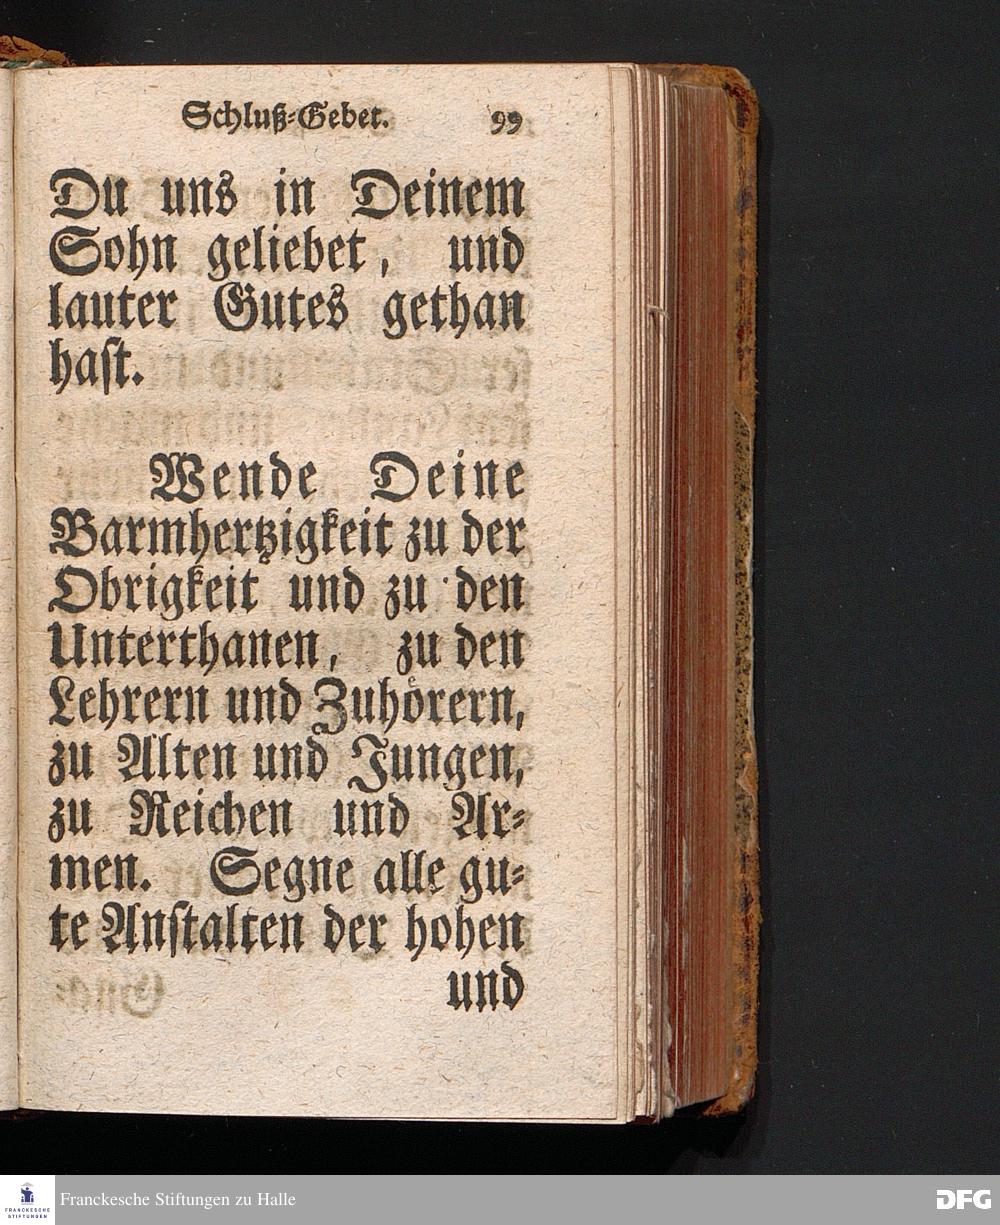 Schluß-Gebet. 99
Du uns in Deinem
Sohn geliebet, und
lauter Gutes gethan
hast.
Wende Deine
Barmhertzigkeit zu der
Obrigkeit und zu den
Unterthanen, zu den
Lehrern und Zuhörern,
zu Alten und Jungen,
zu Reichen und Ar-
men. Segne alle gu-
te Anstalten der hohen
und
FRANCKESCHE
STIFTUNGEN
Franckesche Stiftungen zu Halle
DFG